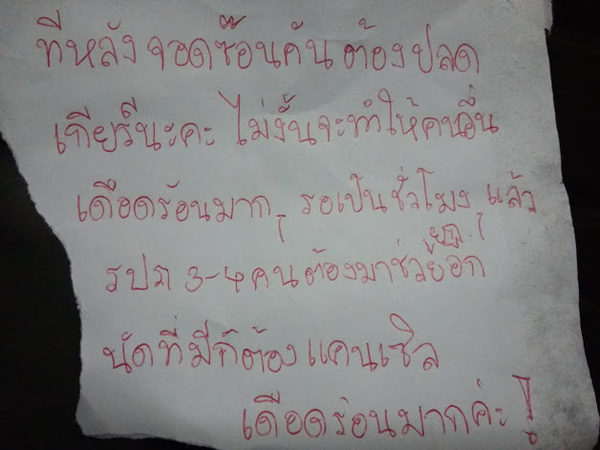 ทีหลัง จอดซ๊อนคัน ต้องปลด
เกียร์นะคะ ไม่งั้นจะทำให้คนอื่น
เดือดร้อนมาก, รอเป็นชั่วโมง, แล้ว
รปภ 3-4 คนต้องมาช่วยยกอีก
นัดที่มีก็ต้องแคนเซิล
เดือดร้อนมากค่ะ !